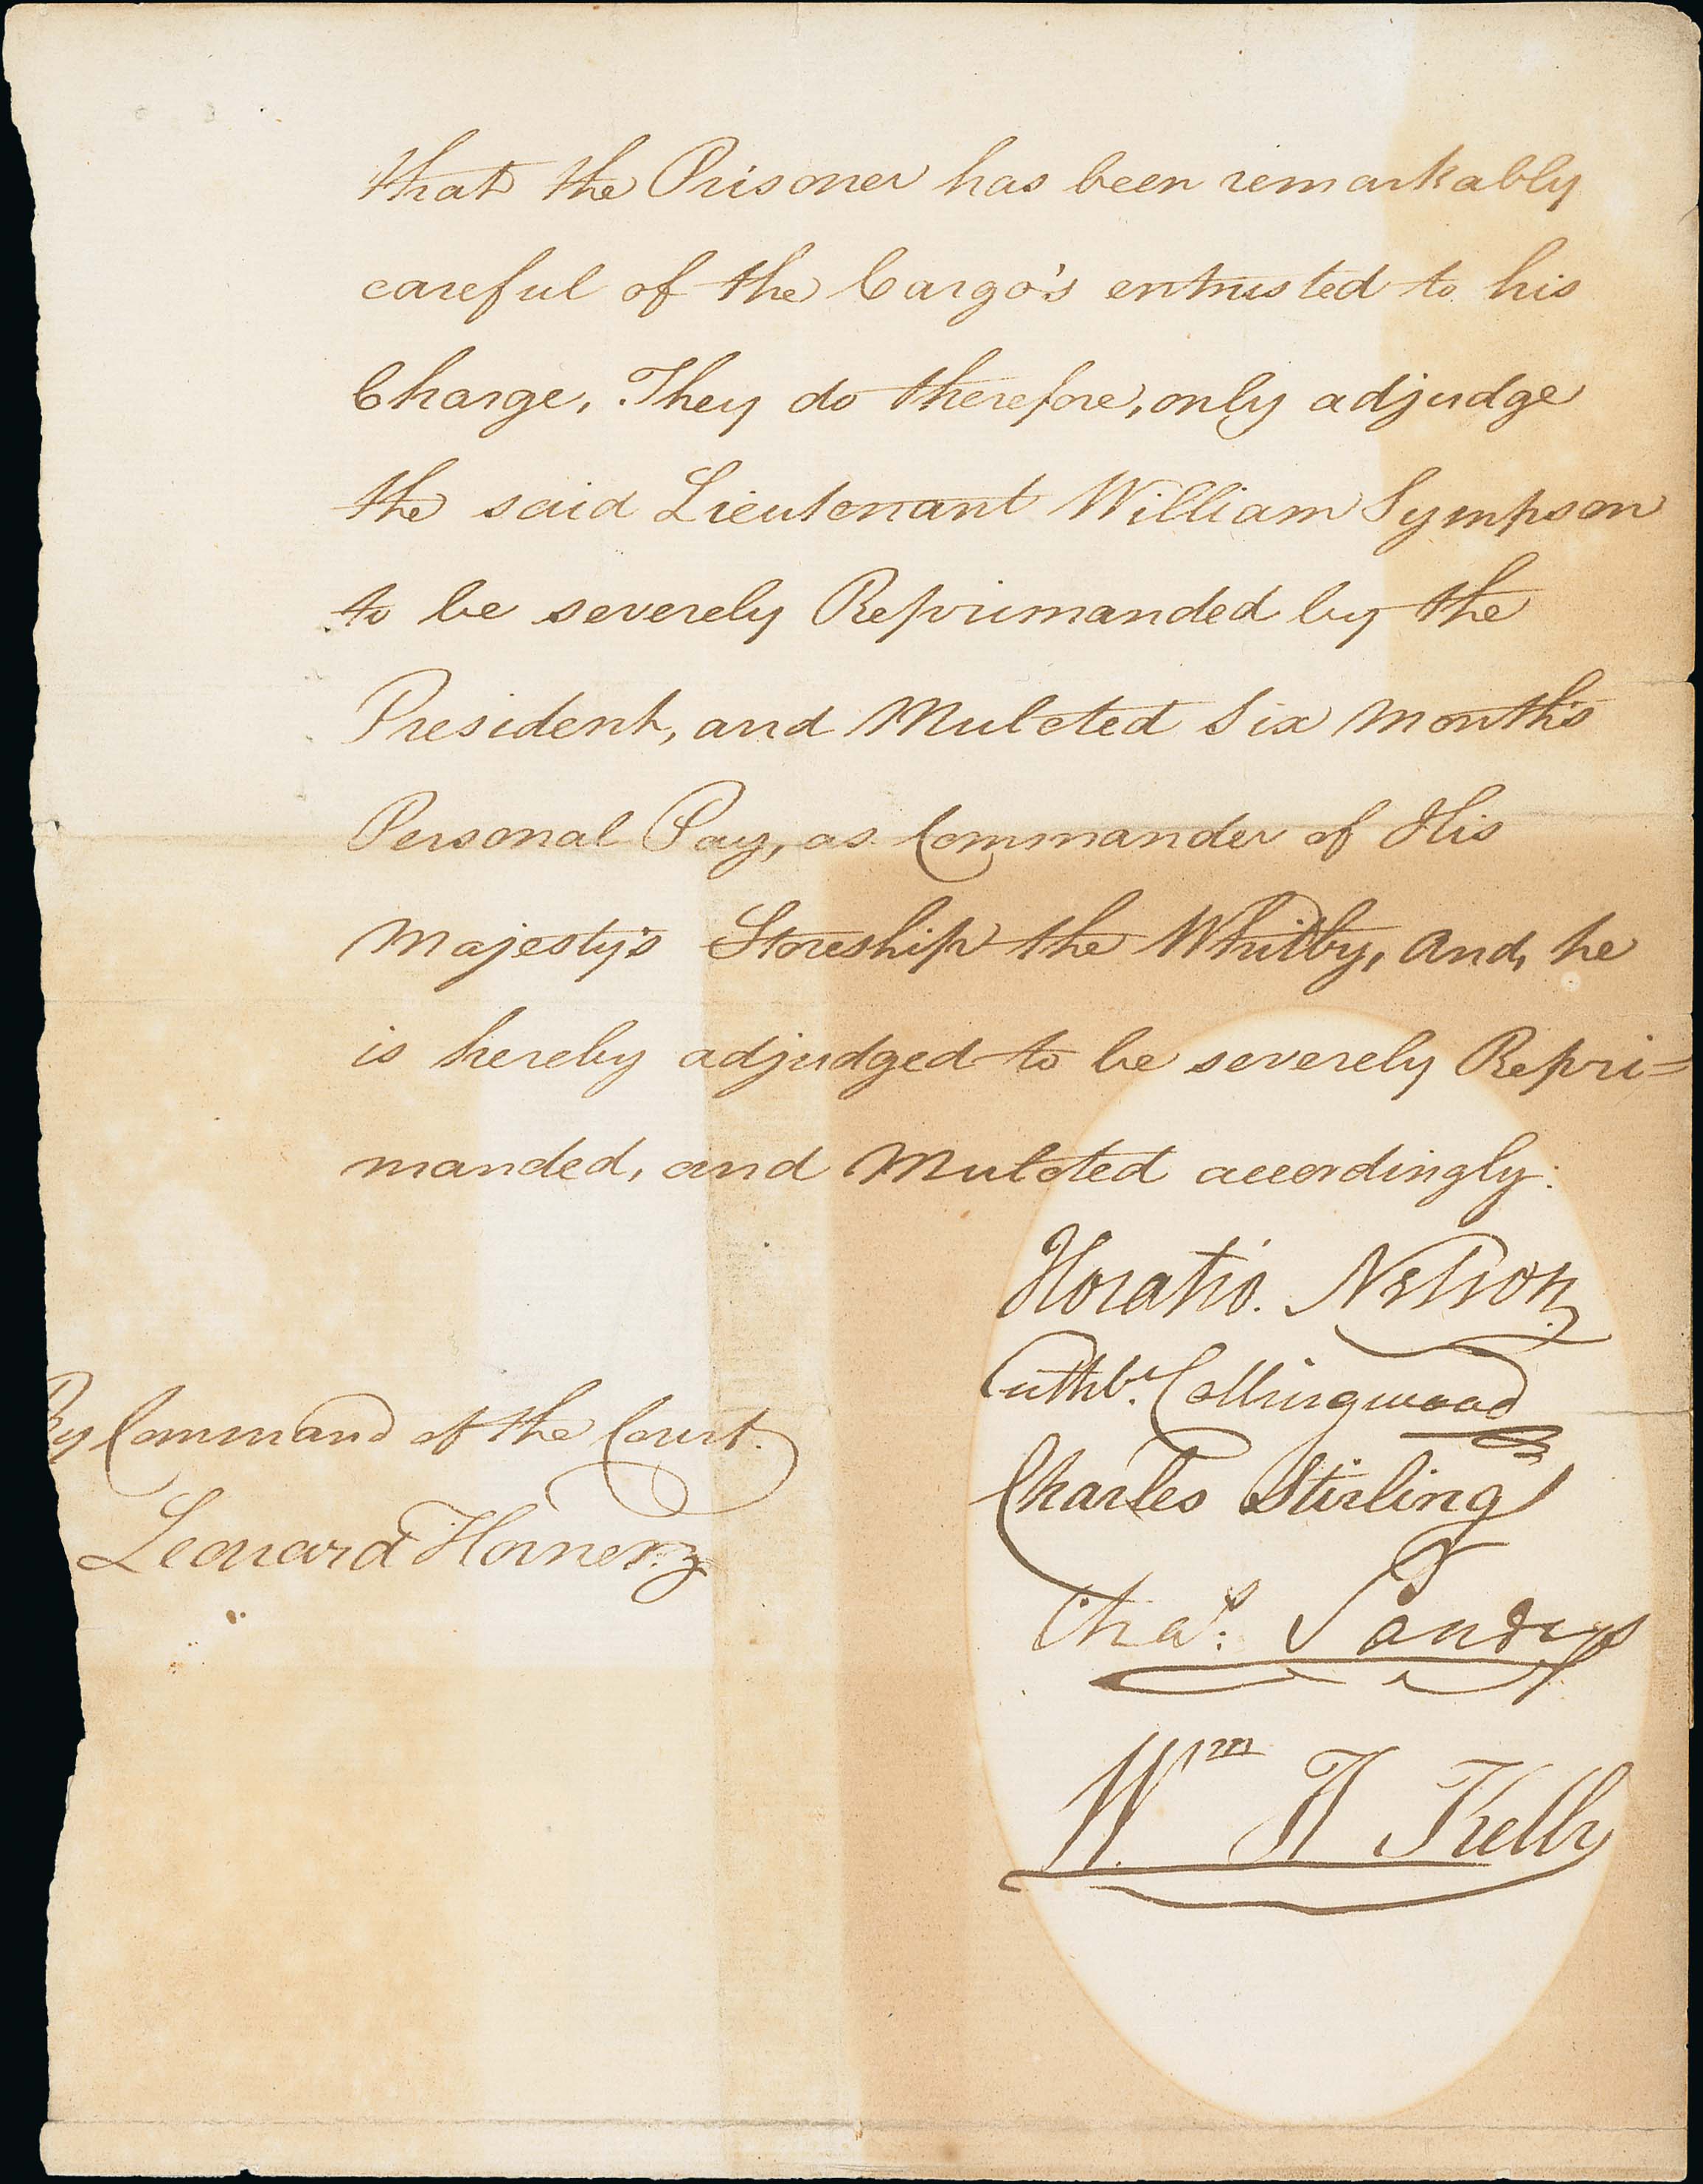 that the Prisoner has been remarkably
careful of the Cargo's entrusted to his
Charge, They do therefore, only adjudge
the said Lieutenant William Sympson
to be severely Reprimanded by the
President, and Mulcted Six Months
Personal Pay, as Commander of His
Majesty's Storeship the Whitby, and, he
is hereby adjudged to be severely Repri=
manded, and Mulcted accordingly.
Horatio. Nelson.
Cuthbt. Collingwood
Charles Stirling
Chas: Sandys
Wm H Kelly
By Command of the Court.
Leonard